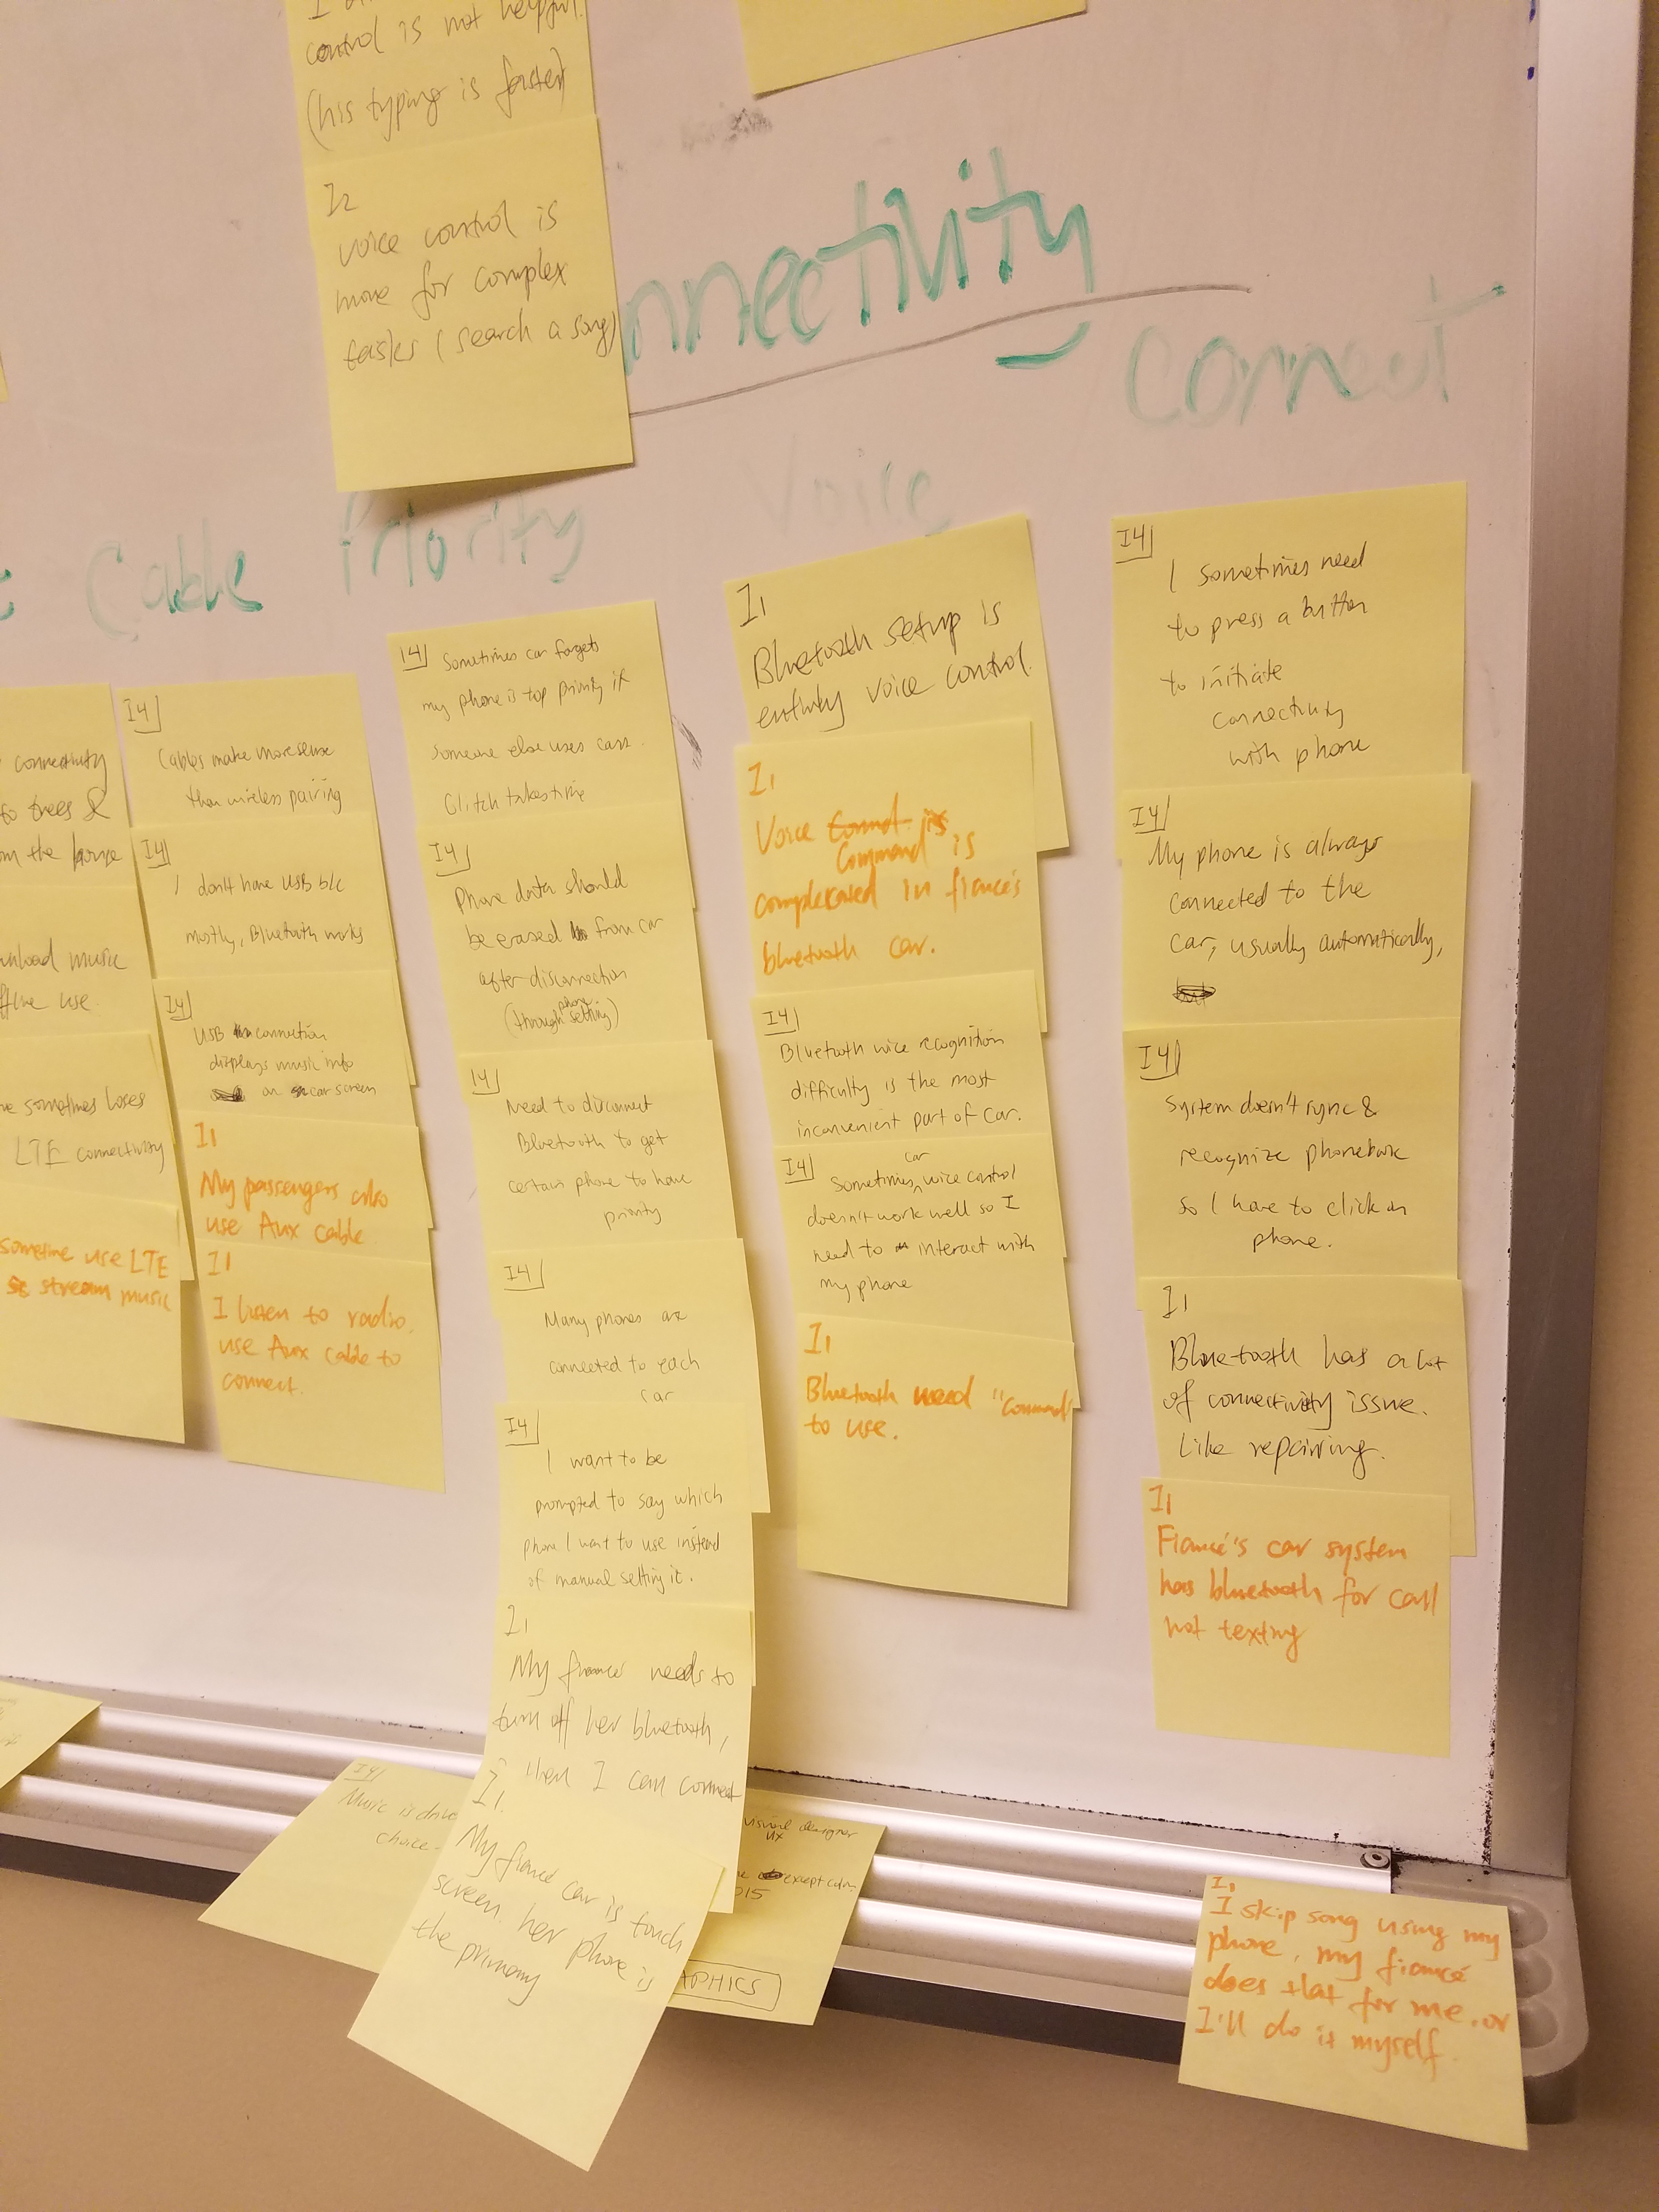 control is not helpful.
(his typing is faster)
I2
voice control is
more for complex
tasks (search a song)
nnectivity
connect
Voice
Cable
Priority
connectivity
to trees &
om the house
nload music
ffline use.
ve sometimes loses
LTE connectivity
sometime use LTE
stream music
I4
Cables make more sense
than wireless pairing
I4
I don't have USB b/c
mostly, Bluetooth works
I4
USB connection
displays music info
on car screen
I1
My passengers also
use Aux cable
I1
I listen to radio.
use Aux cable to
connect.
I4 Sometimes car forgets
my phone is top priority if
someone else uses car.
Glitch takes time
I4
Phone data should
be erased from car
after disconnection
(through phone setting)
I4
Need to disconnect
Bluetooth to get
certain phone to have
priority
I4
Many phones are
connected to each
car
I4
I want to be
prompted to say which
phone I want to use instead
of manual setting it.
I1
My fiancé needs to
turn off her bluetooth,
then I can connect
I1.
My fiancé car is touch
screen. her phone is
the primary
I1
Bluetooth setup is
entirely voice control.
I1
Voice
Command is
complecated in fiancé's
bluetooth car.
I4
Bluetooth voice recognition
difficulty is the most
inconvenient part of car.
I4 Sometimes, car voice control
doesn't work well so I
need to interact with
my phone
I1
Bluetooth need "Command"
to use.
I4
I sometimes need
to press a button
to initiate
connectivity
with phone
I4
My phone is always
connected to the
car, usually automatically,
I4
System doesn't sync &
recognize phonebook
so I have to click on
phone.
I1
Bluetooth has a lot
of connectivity issue.
Like repairing.
I1
Fiancé's car system
has bluetooth for call
not texting
I4
Music is
choice.
visual designer
UX
except
015
APHICS
I1
I skip song using my
phone, my fiancé
does that for me, or
I'll do it myself.